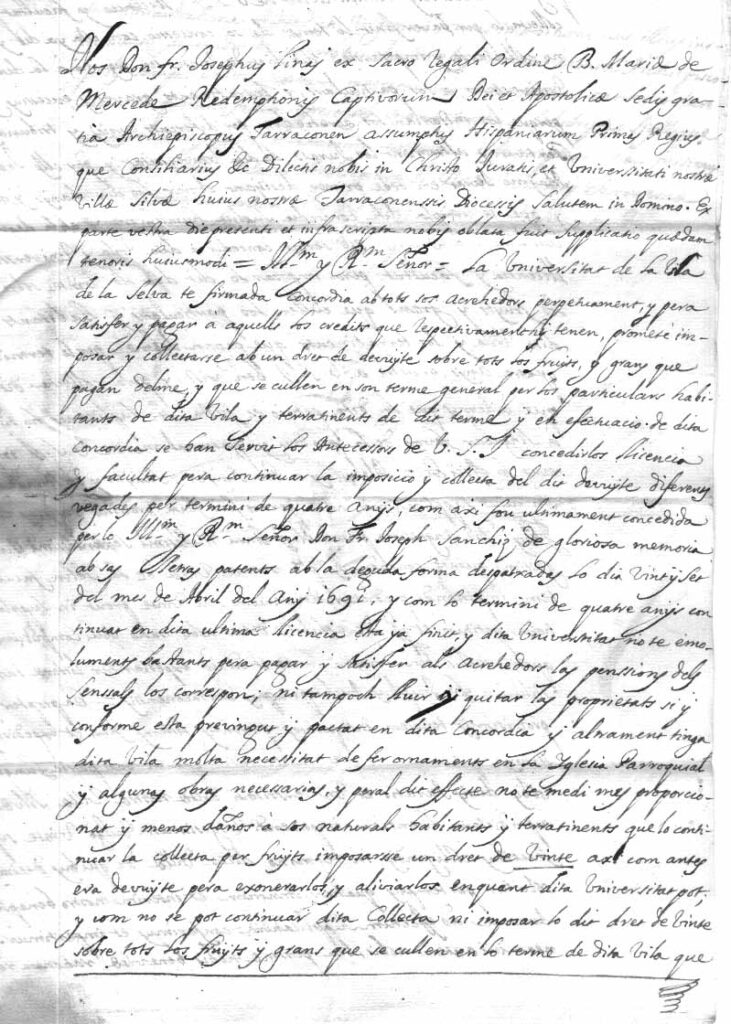 Nos Don fr. Josephus Linas ex Sacro Regali Ordine B. Mariæ de
Mercede Redemptionis Captivorum, Dei et Apostolicæ Sedis gra-
tia Archiepiscopus Tarraconen assumptus Hispaniarum Primas Regius-
que Consiliarius &c Dilectis nobis in Christo Juratis, et Universitati nostræ
Villæ Silvæ huius nostræ Tarraconensis Diocesis Salutem in Domino. Ex
parte vestra die presenti et infrascripta nobis oblata fuit supplicatio quædam
tenoris huiusmodi = Ill.m y R.m Señor = La Universitat de la Vila
de la Selva te firmada Concordia ab tots sos Acrehedors perpetuament, y pera
satisfer y pagar à aquells los credits que respectivament hi tenen, prometé im-
posar y collectarse ab un dret de devuyte sobre tots los fruyts, y grans que
pagan delme, y que se cullen en son terme general per los particulars habi-
tants de dita Vila y terratinents de dit terme y en efectuacio de dita
Concordia se han servit los Antecessors de V. S. I concedirlos llicencia
y facultat pera continuar la imposicio y collecta del dit devuyte diferents
vegades per termini de quatre anys, com axi fou ultimament concedida
per lo Ill.m y R.m Señor Don Fr. Joseph Sanchiz de gloriosa memoria
ab sas lletras patents ab la deguda forma despatxadas lo dia Vint y set
del mes de Abril del Any 1691, y com lo termini de quatre anys con
tinuat en dita ultima llicencia esta ya finit, y dita Universitat no te emo-
luments bastants pera pagar y satisfer als Acrehedors las pensions dels
Senssals los correspon; ni tampoch lluir y quitar las proprietats si y
conforme esta previngut y pactat en dita Concordia y altrament tinga
dita Vila molta necessitat de fer ornaments en la Iglesia Parroquial
y algunas obras necessarias, y peral dit effecte no te medi mes proporcio-
nat y menos dañós à sos naturals habitants y terratinents que lo conti-
nuar la collecta per fruyts imposarsse un dret de Vinte axi com antes
era devuyte pera exonerarlos, y aliviarlos enquant dita Universitat pot,
y com no se pot continuar dita Collecta ni imposar lo dit dret de Vinte
sobre tots los fruyts y grans que se cullen en lo terme de dita Vila que